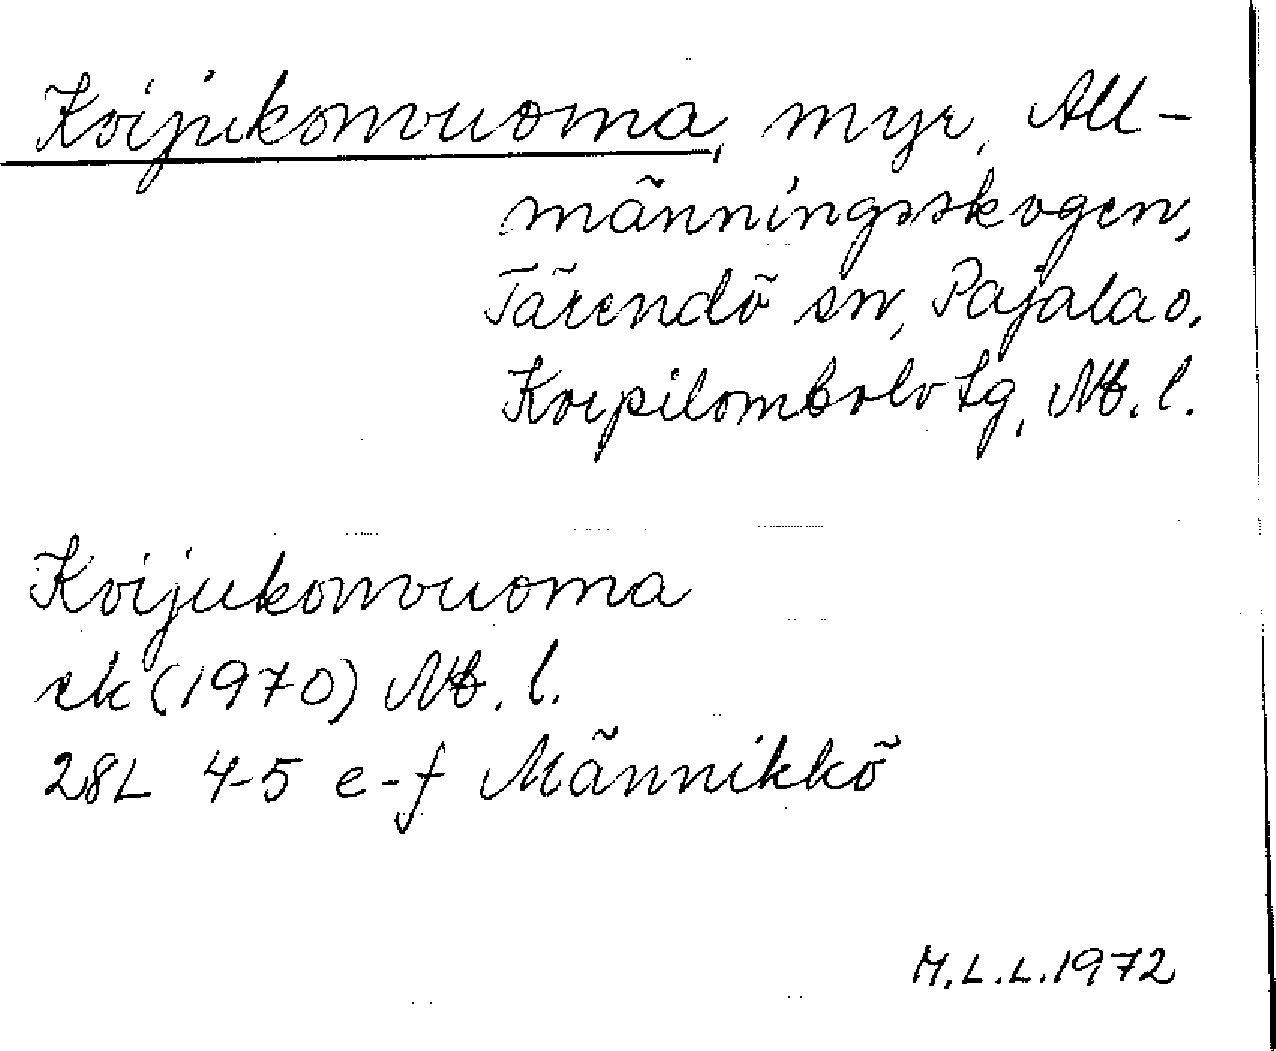 Koijukonvuoma, myr, All-
männingsskogen,
Tärendö sn, Pajala o.
Korpilombolo tg, Nb. l.
Koijukonvuoma
ek (1970) Nb. l.
28L 4-5 e-f Männikkö
M.L.L. 1972